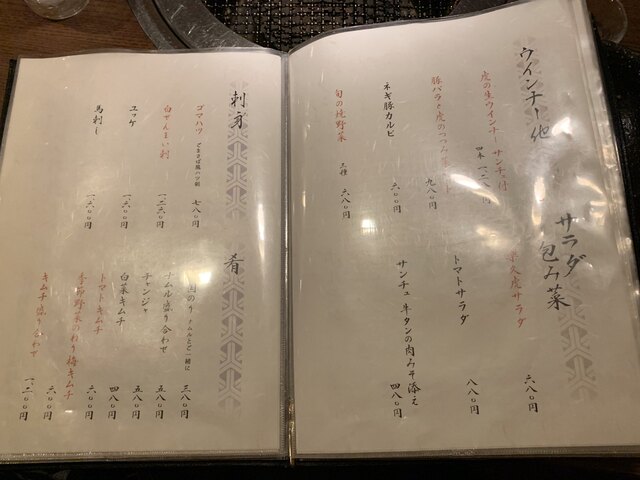 ウインナー他
虎の生ウインナー サンチュ付
四本 一、二八〇円
豚バラと虎のつみ
九八〇円
ネギ豚カルビ
六〇〇円
旬の焼野菜
三種 六八〇円
サラダ
包み菜
楽久虎サラダ
六八〇円
トマトサラダ
八八〇円
サンチュ 牛タンの肉みそ添え
四八〇円
刺身
ゴマハツ ごまさば風ハツ刺
七八〇円
白せんまい刺
一、二六〇円
ユッケ
一、六〇〇円
馬刺し
一、六〇〇円
肴
国のり ナムルとご一緒に
三八〇円
ナムル盛り合わせ
五八〇円
チャンジャ
五八〇円
白菜キムチ
四八〇円
トマトキムチ
六〇〇円
季節野菜のわり梅キムチ
六〇〇円
キムチ盛り合わせ
一、二〇〇円